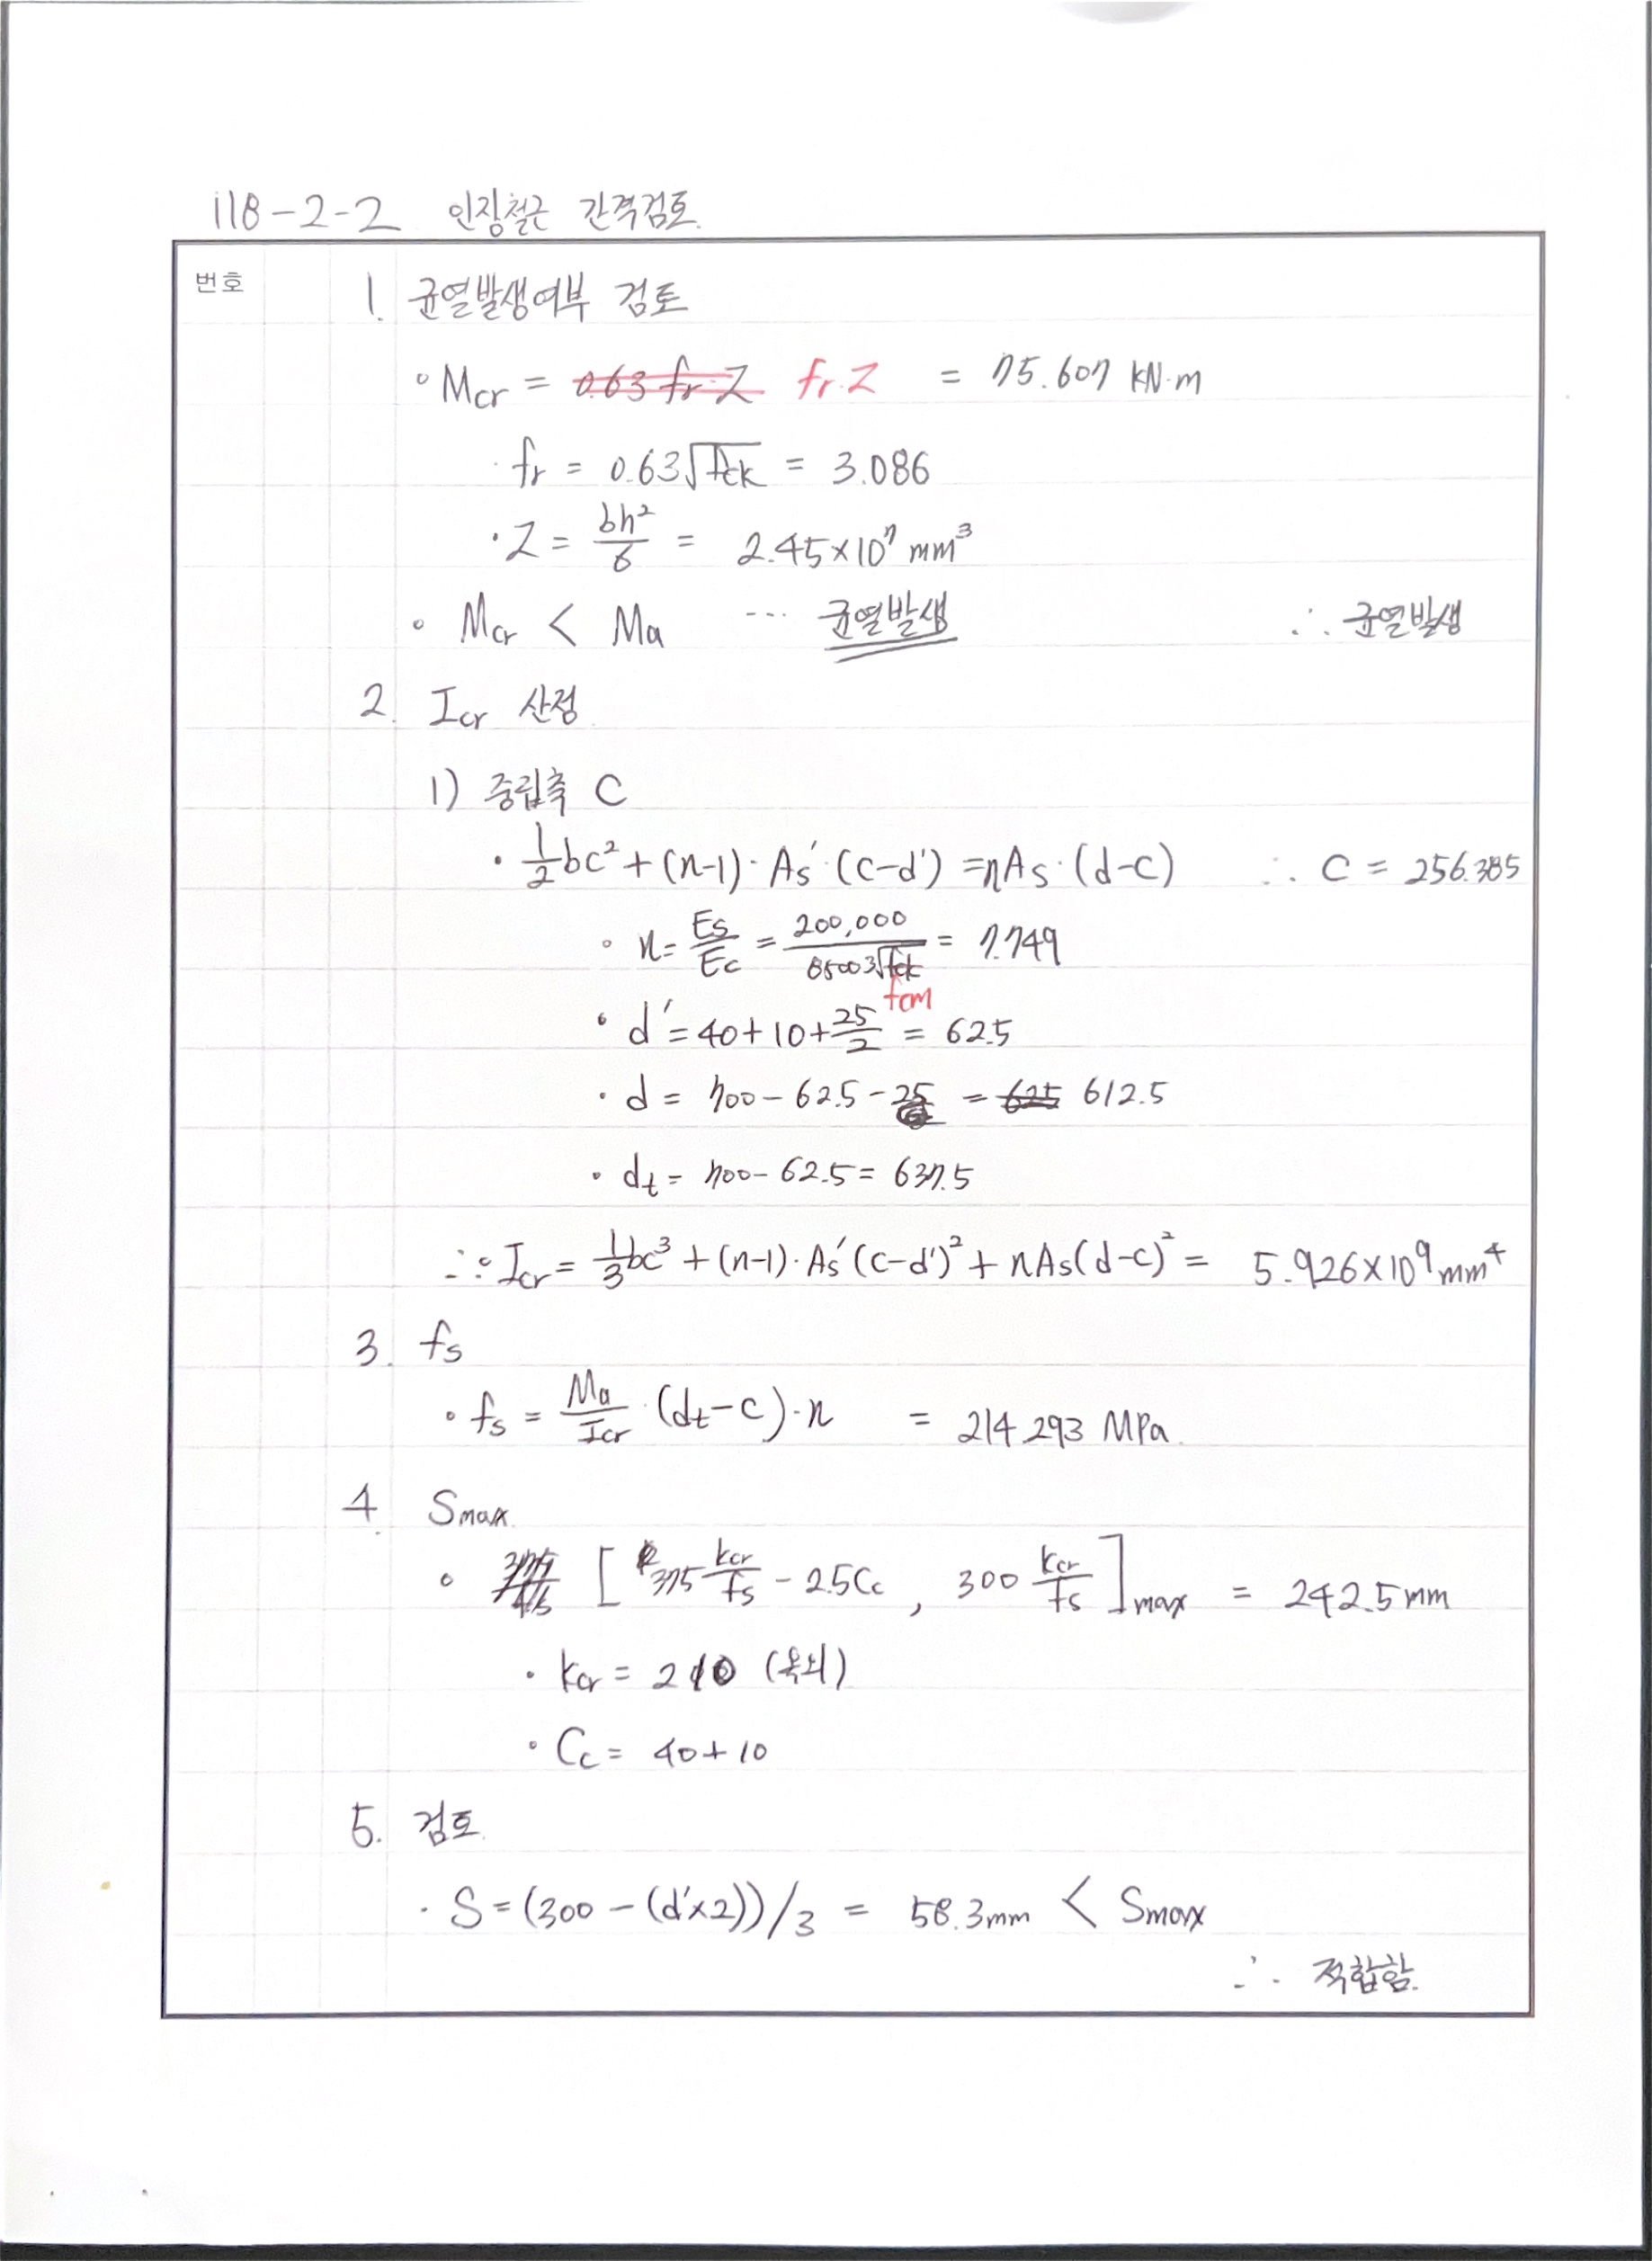 118-2-2 인장철근 간격검토.
번호
1. 균열발생여부 검토
∘ Mcr = 0.63 fr·Z fr·Z = 75.607 kN·m
· fr = 0.63√fck = 3.086
· Z = bh²/6 = 2.45×10⁷ mm³
∘ Mcr < Ma ··· 균열발생 ∴ 균열발생
2. Icr 산정
1) 중립축 C
· 1/2bc² + (n-1)·As'·(c-d') = nAs·(d-c) ∴ C = 256.385
∘ n = Es/Ec = 200,000/8500³√fck = 7.749
fcm
∘ d' = 40+10+25/2 = 62.5
· d = 700 - 62.5 - 25 = 625 612.5
· dt = 700 - 62.5 = 637.5
∴ ∘ Icr = 1/3bc³ + (n-1)·As'(c-d')² + nAs(d-c)² = 5.926×10⁹mm⁴
3. fs
∘ fs = Ma/Icr·(dt-c)·n = 214.293 MPa.
4. Smax
∘ [375 kcr/fs - 2.5Cc , 300 kcr/fs]max = 242.5mm
· kcr = 210 (옥외)
∘ Cc = 40+10
5. 검토.
· S = (300 - (d'×2))/3 = 58.3mm < Smax
∴ 적합함.